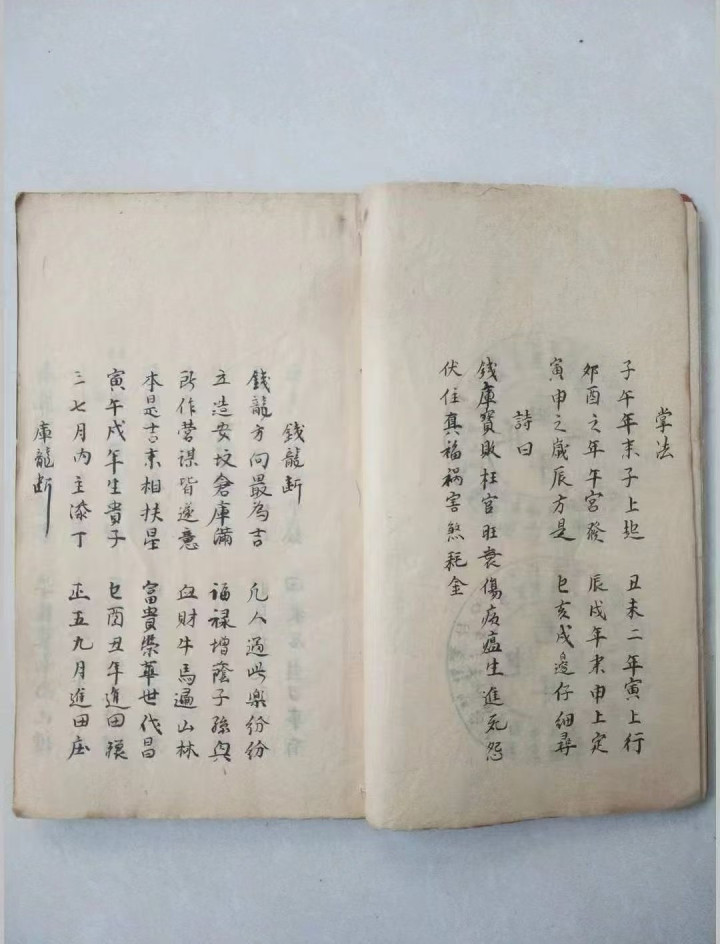 掌法
子午年来子上起 丑未二年寅上行
卯酉之年午宮發 辰戌年来申上定
寅申之歲辰方是 巳亥戌邊仔細尋
詩曰
錢庫寶敗枉官旺衰傷病瘟生進死怨
伏住真福祸害煞耗金
錢龍断
錢龍方向最為吉 凡人遇此樂份份
立造安坟倉庫滿 福禄增蔭子孫興
所作營谋皆遂意 血財牛馬遍山林
本是吉来相扶星 富貴榮華世代昌
寅午戌年生貴子 巳酉丑年進田環
三七月内主添丁 正五九月進田庄
庫龍断